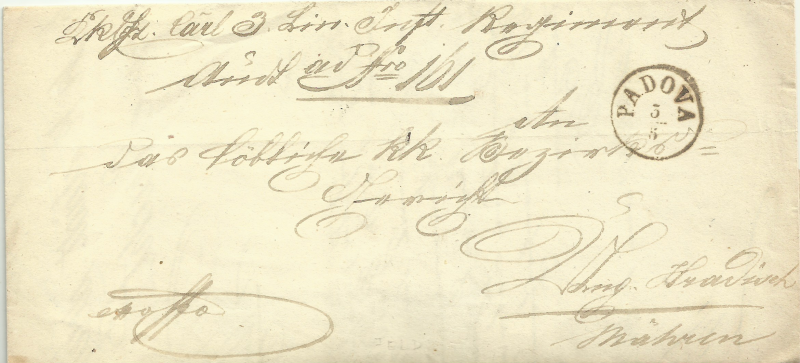 Carl 3. Lin. Inft. Regiment
Audt ad Nro 161
PADOVA
5
5
An
das löbliche kk. Bezirks=
Gericht
Ung. Hradisch
Mähren
ex offo